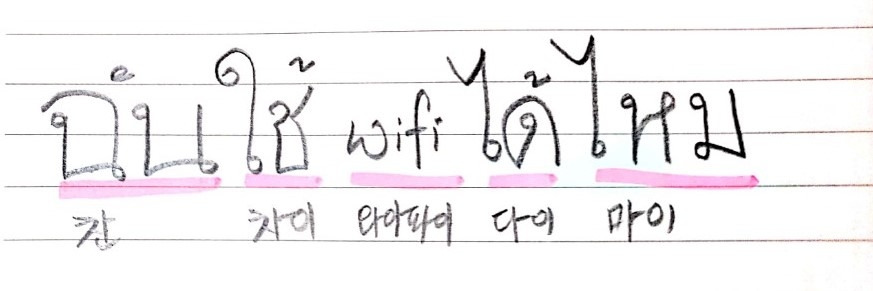 ฉันใช้ wifi ได้ไหม
찬 차이 와이파이 다이 마이